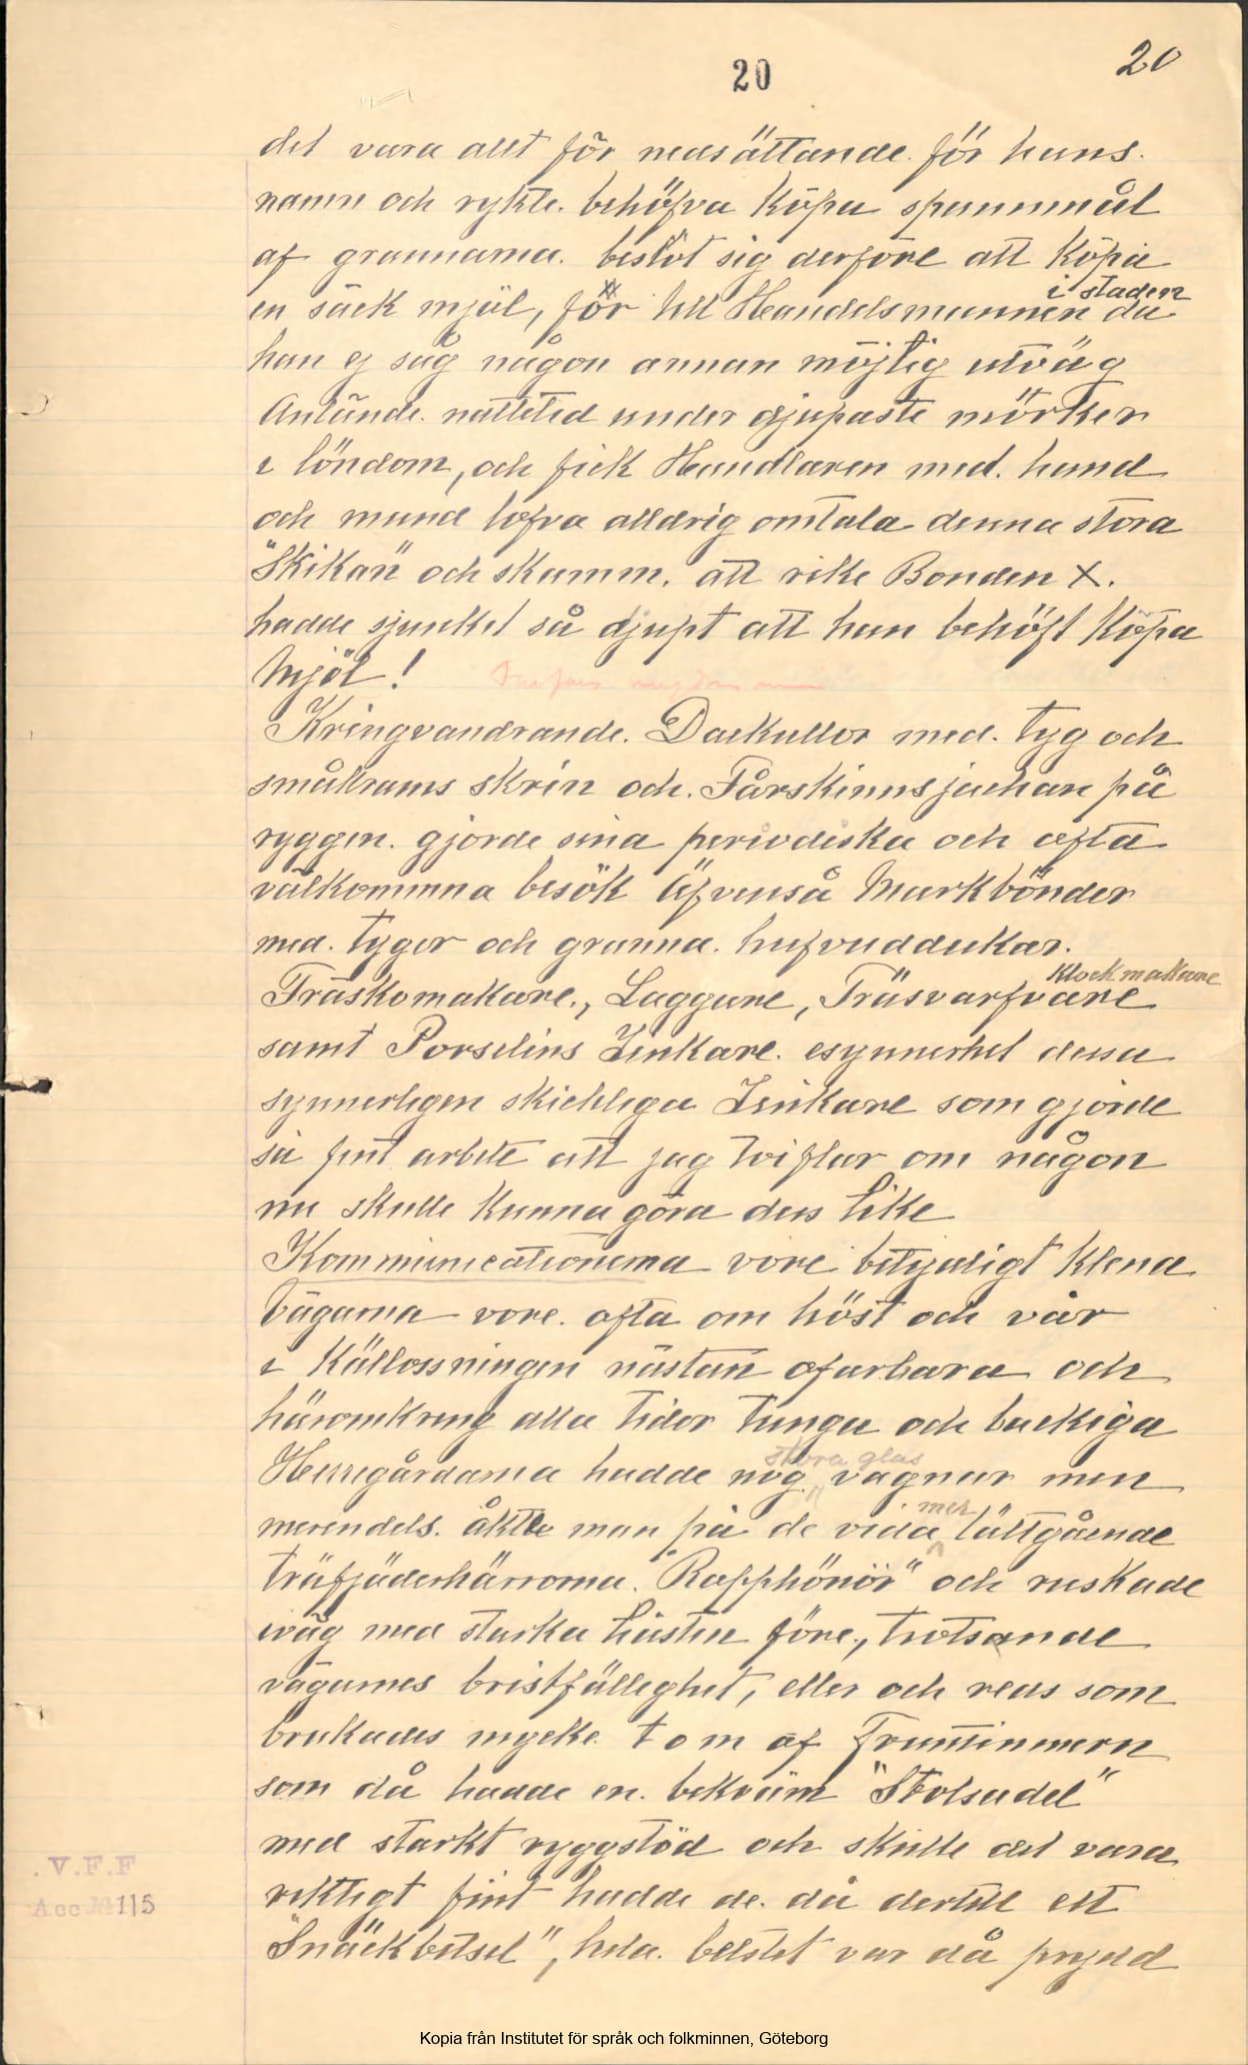 20
20
det vara allt för nedsättande för hans
namn och rykte behöfva köpa spannmål
af grannarna. beslöt sig derföre att köpa
i staden
en säck mjöl, för till Handelsmannen då
han ej såg någon annan möjlig utväg
Anlände nattetid under djupaste mörker
i löndom, och fick Handlaren med hand
och mund lofva alldrig omtala denna stora
"Skikan" och skamm. att rike Bonden X.
hadde sjunkit så djupt att han behöft köpa
Mjöl!
Kringvandrande. Daekullor med. tyg och
småkrams skrin och. Fårskinnsjackan på
ryggen. gjorde sina periodiska och ofta
välkomna besök Äfvenså Markbönder
med. tyger och granna. hufvuddukar.
Klockmakare
Träskomakare., Laggare, Träsvarfvare
samt Porselins Linkare. esynnerhet dessa
synnerligen skickliga Linkare som gjorde
så fint arbete att jag tviflar om någon
nu skulle kunna göra dess like
Kommunicationerna vore betydligt klena
Vägarna vore. ofta om höst och vår
i Källossningen nästan ofarbara och
häromkring alla tider tunga och backiga
stora glas
Herregårdarna hadde nog vagnar men
mer
merendels. åkte man på de vida lättgående
träfjäderhärrorna. "Rapphönör" och ruskade
iväg med starka hästen före., trotsande
vägarnes bristfällighet, eller och reds som
brukades mycke t o m af Fruntimmern
som då hadde en. bekväm "Stolsadel"
med starkt ryggstöd och skulle det vara
riktigt fint hadde de. då dertill ett
"Snäckbetsel", hela. betslet var då prydd
. V.F.F
Acc № 115
Kopia från Institutet för språk och folkminnen, Göteborg